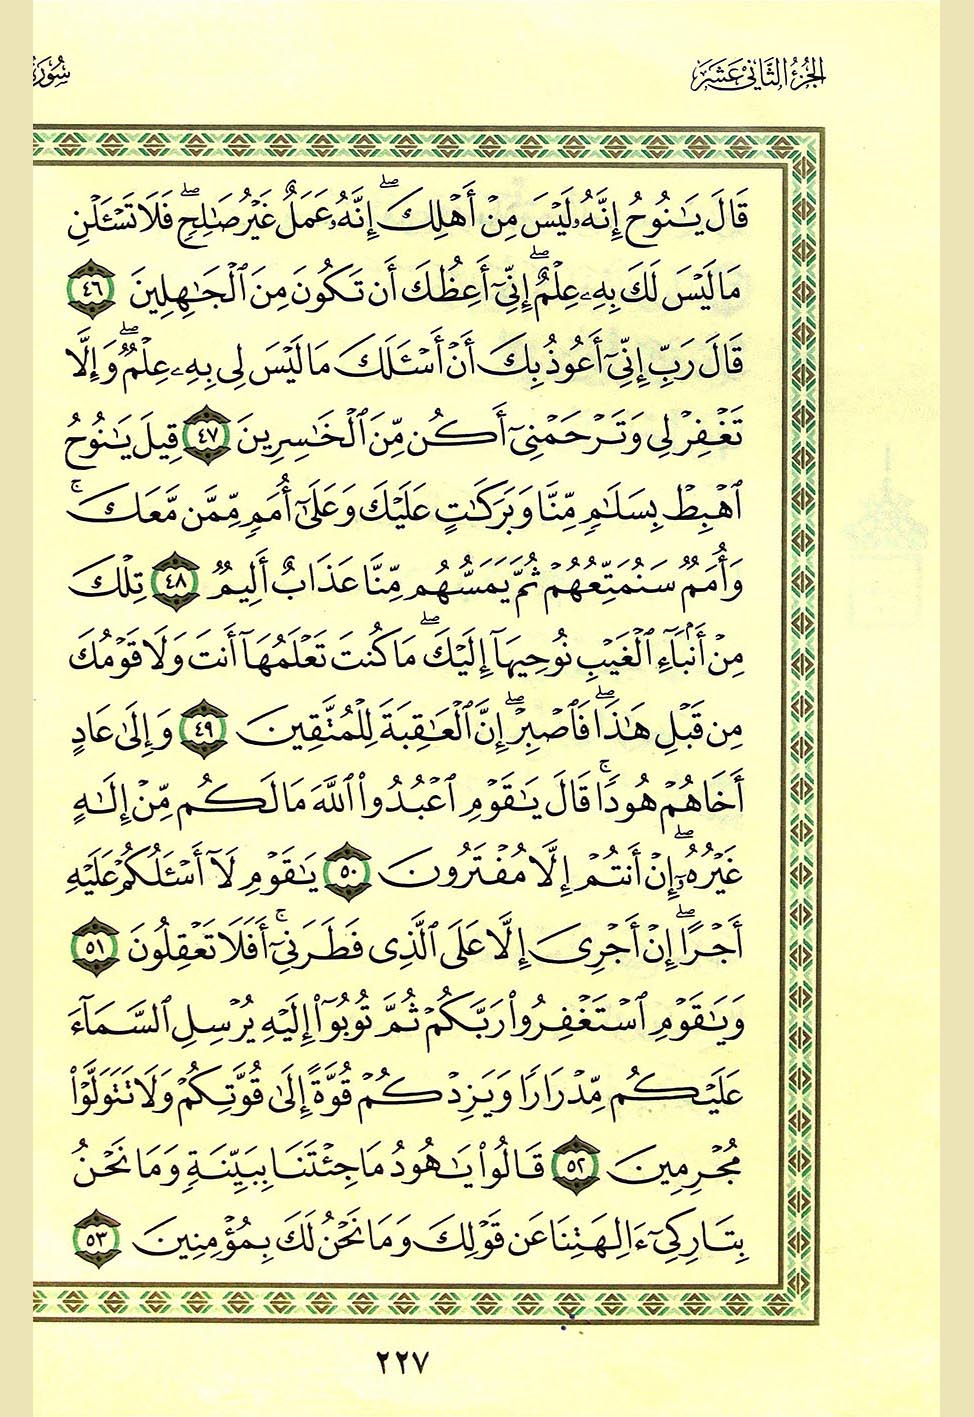 الجزء الثاني عشر
سورة
قَالَ يَٰنُوحُ إِنَّهُۥ لَيۡسَ مِنۡ أَهۡلِكَۖ إِنَّهُۥ عَمَلٌ غَيۡرُ صَٰلِحٖۖ فَلَا تَسۡـَٔلۡنِ
مَا لَيۡسَ لَكَ بِهِۦ عِلۡمٌۖ إِنِّيٓ أَعِظُكَ أَن تَكُونَ مِنَ ٱلۡجَٰهِلِينَ ٤٦
قَالَ رَبِّ إِنِّيٓ أَعُوذُ بِكَ أَنۡ أَسۡـَٔلَكَ مَا لَيۡسَ لِي بِهِۦ عِلۡمٞۖ وَإِلَّا
تَغۡفِرۡ لِي وَتَرۡحَمۡنِيٓ أَكُن مِّنَ ٱلۡخَٰسِرِينَ ٤٧ قِيلَ يَٰنُوحُ
ٱهۡبِطۡ بِسَلَٰمٖ مِّنَّا وَبَرَكَٰتٍ عَلَيۡكَ وَعَلَىٰٓ أُمَمٖ مِّمَّن مَّعَكَۚ
وَأُمَمٞ سَنُمَتِّعُهُمۡ ثُمَّ يَمَسُّهُم مِّنَّا عَذَابٌ أَلِيمٞ ٤٨ تِلۡكَ
مِنۡ أَنۢبَآءِ ٱلۡغَيۡبِ نُوحِيهَآ إِلَيۡكَۖ مَا كُنتَ تَعۡلَمُهَآ أَنتَ وَلَا قَوۡمُكَ
مِن قَبۡلِ هَٰذَاۖ فَٱصۡبِرۡۖ إِنَّ ٱلۡعَٰقِبَةَ لِلۡمُتَّقِينَ ٤٩ وَإِلَىٰ عَادٍ
أَخَاهُمۡ هُودٗاۚ قَالَ يَٰقَوۡمِ ٱعۡبُدُواْ ٱللَّهَ مَا لَكُم مِّنۡ إِلَٰهٍ
غَيۡرُهُۥٓۖ إِنۡ أَنتُمۡ إِلَّا مُفۡتَرُونَ ٥٠ يَٰقَوۡمِ لَآ أَسۡـَٔلُكُمۡ عَلَيۡهِ
أَجۡرًاۖ إِنۡ أَجۡرِيَ إِلَّا عَلَى ٱلَّذِي فَطَرَنِيٓۚ أَفَلَا تَعۡقِلُونَ ٥١
وَيَٰقَوۡمِ ٱسۡتَغۡفِرُواْ رَبَّكُمۡ ثُمَّ تُوبُوٓاْ إِلَيۡهِ يُرۡسِلِ ٱلسَّمَآءَ
عَلَيۡكُم مِّدۡرَارٗا وَيَزِدۡكُمۡ قُوَّةً إِلَىٰ قُوَّتِكُمۡ وَلَا تَتَوَلَّوۡاْ
مُجۡرِمِينَ ٥٢ قَالُواْ يَٰهُودُ مَا جِئۡتَنَا بِبَيِّنَةٖ وَمَا نَحۡنُ
بِتَارِكِيٓ ءَالِهَتِنَا عَن قَوۡلِكَ وَمَا نَحۡنُ لَكَ بِمُؤۡمِنِينَ ٥٣
٢٢٧